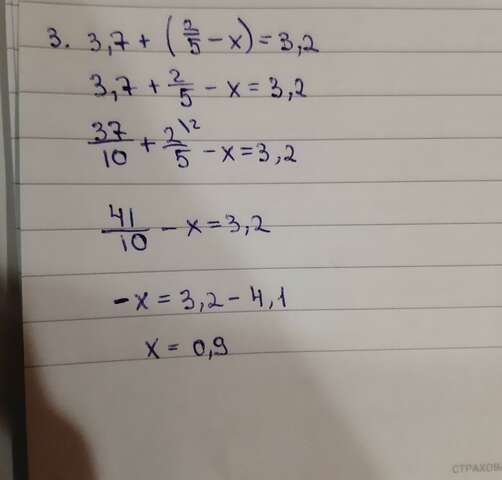 3. 3,7 + (2/5 - x) = 3,2
3,7 + 2/5 - x = 3,2
37/10 + 2\2/5 - x = 3,2
41/10 - x = 3,2
-x = 3,2 - 4,1
x = 0,9
СТРАХОВ